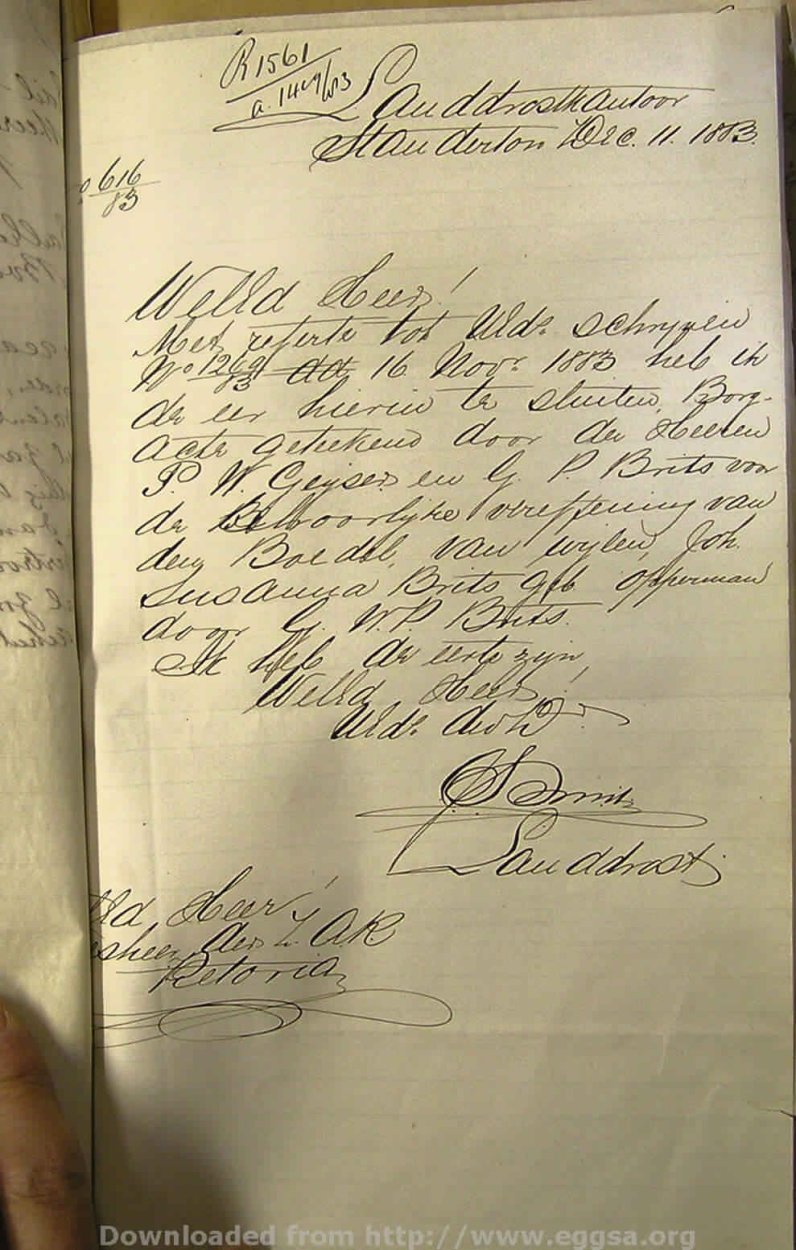 R 1561
a. 1409/83
Landdrostkantoor
Standerton Dec. 11. 1883.
616
83
WelEd Heer!
Met referte tot UEds schryven
No 1269/83 dd 16 Novr 1883 heb ik
de eer hierin te sluiten Borg-
acte geteekend door de Heeren
P. W. Geyser en G. P. Brits voor
de behoorlyke vereffening van
den Boedel van wijlen Joh.
Susanna Brits geb Opperman
door G. W. P. Brits.
Ik heb de eer te zijn
WelEd Heer!
UEds dwdr
Smit
Landdrost
Ed Heer!
sheer der Z. A R
Pretoria
Downloaded from http://www.eggsa.org